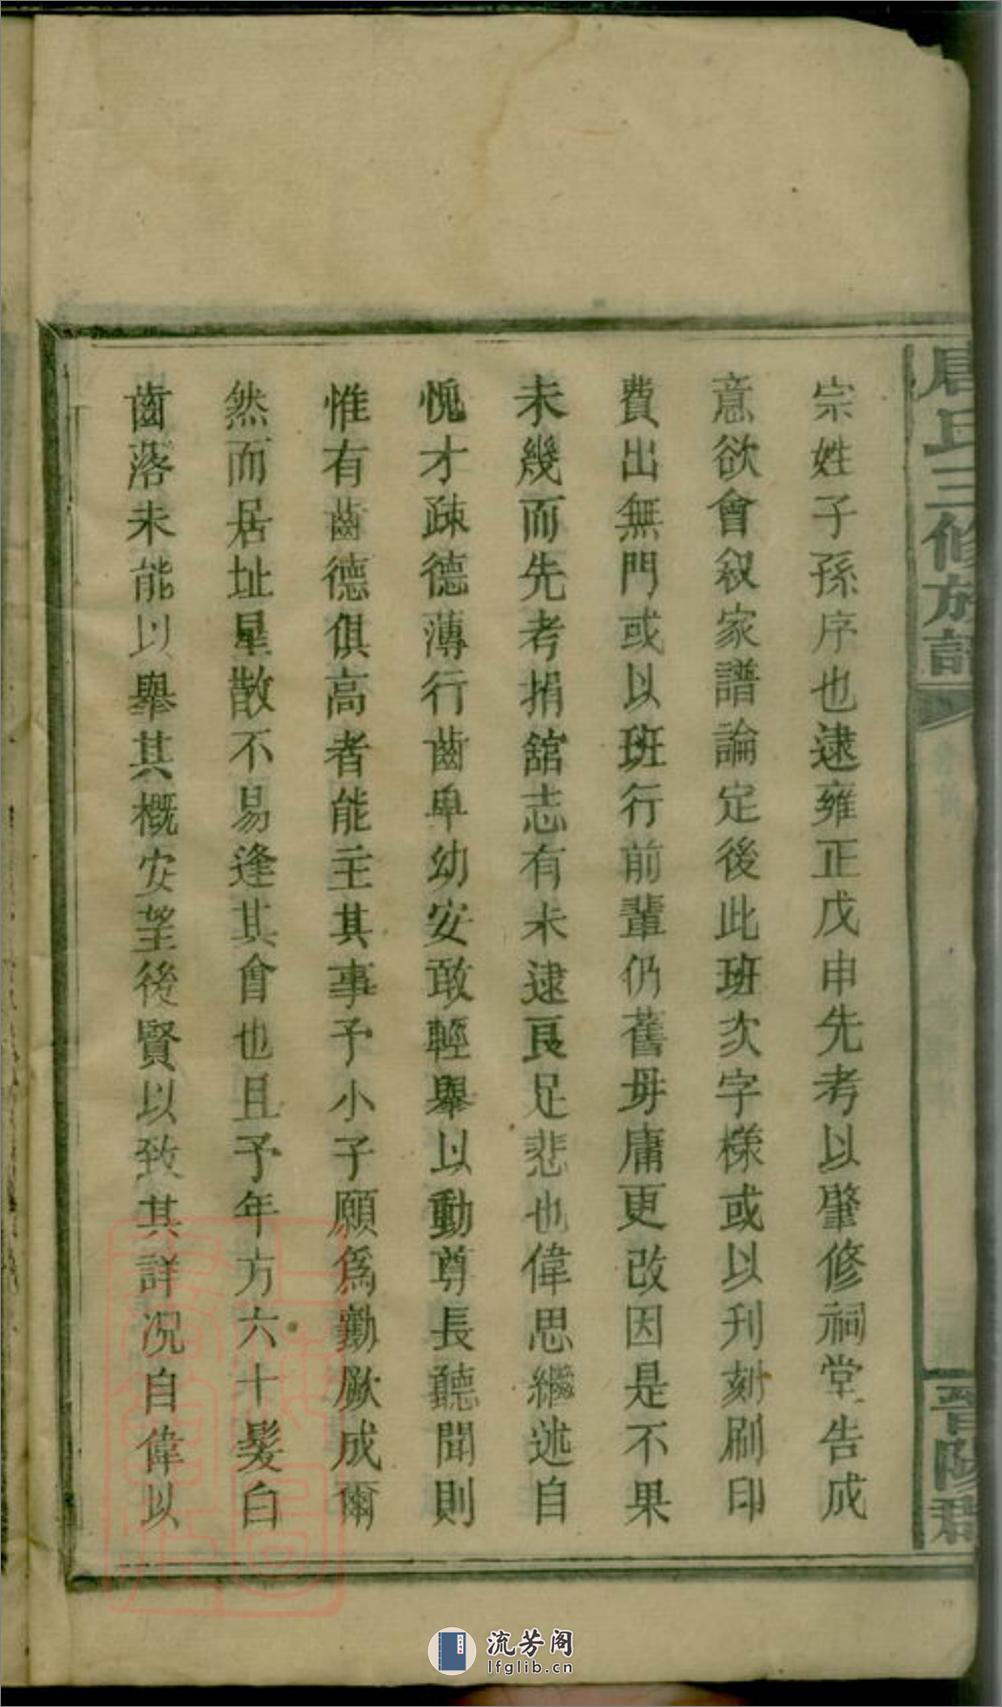 唐氏三修族譜
晉陽郡
宗姓子孫序也逮雍正戊申先考以肇修祠堂告成
意欲會叙家譜論定後此班次字樣或以刊刻刷印
費出無門或以班行前輩仍舊毋庸更改因是不果
未幾而先考捐舘志有未逮良足悲也偉思繼述自
愧才疎德薄行齒卑幼安敢輕舉以動尊長聽聞則
惟有齒德俱高者能主其事予小子願爲勷厥成爾
然而居址星散不易逢其會也且予年方六十髮白
齒落未能以舉其概安望後賢以致其詳况自偉以
流芳阁
lfglib.cn